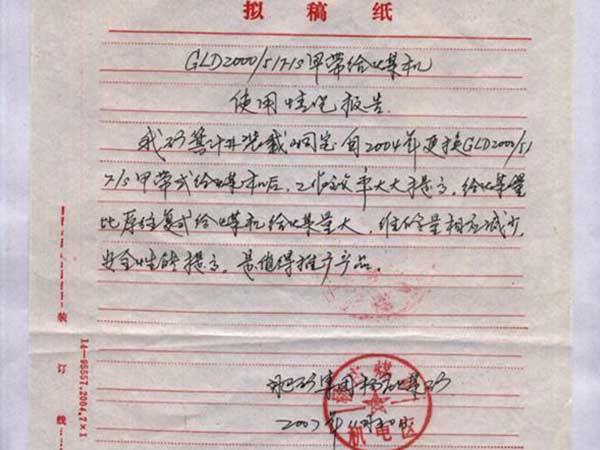 拟稿纸
GLD2000/5/7/S甲带给煤机
使用性能报告
我矿暮井装载硐室自2004年更换GLD2000/5/
7/S甲带式给煤机后，工作效率大大提高，给煤量
比原往复式给煤机给煤量大，维修量相应减少，
安全性能提高，是值得推广产品。
矿集团 煤矿
2007年11月
机电区
装订线
14—95557.2004.7×1